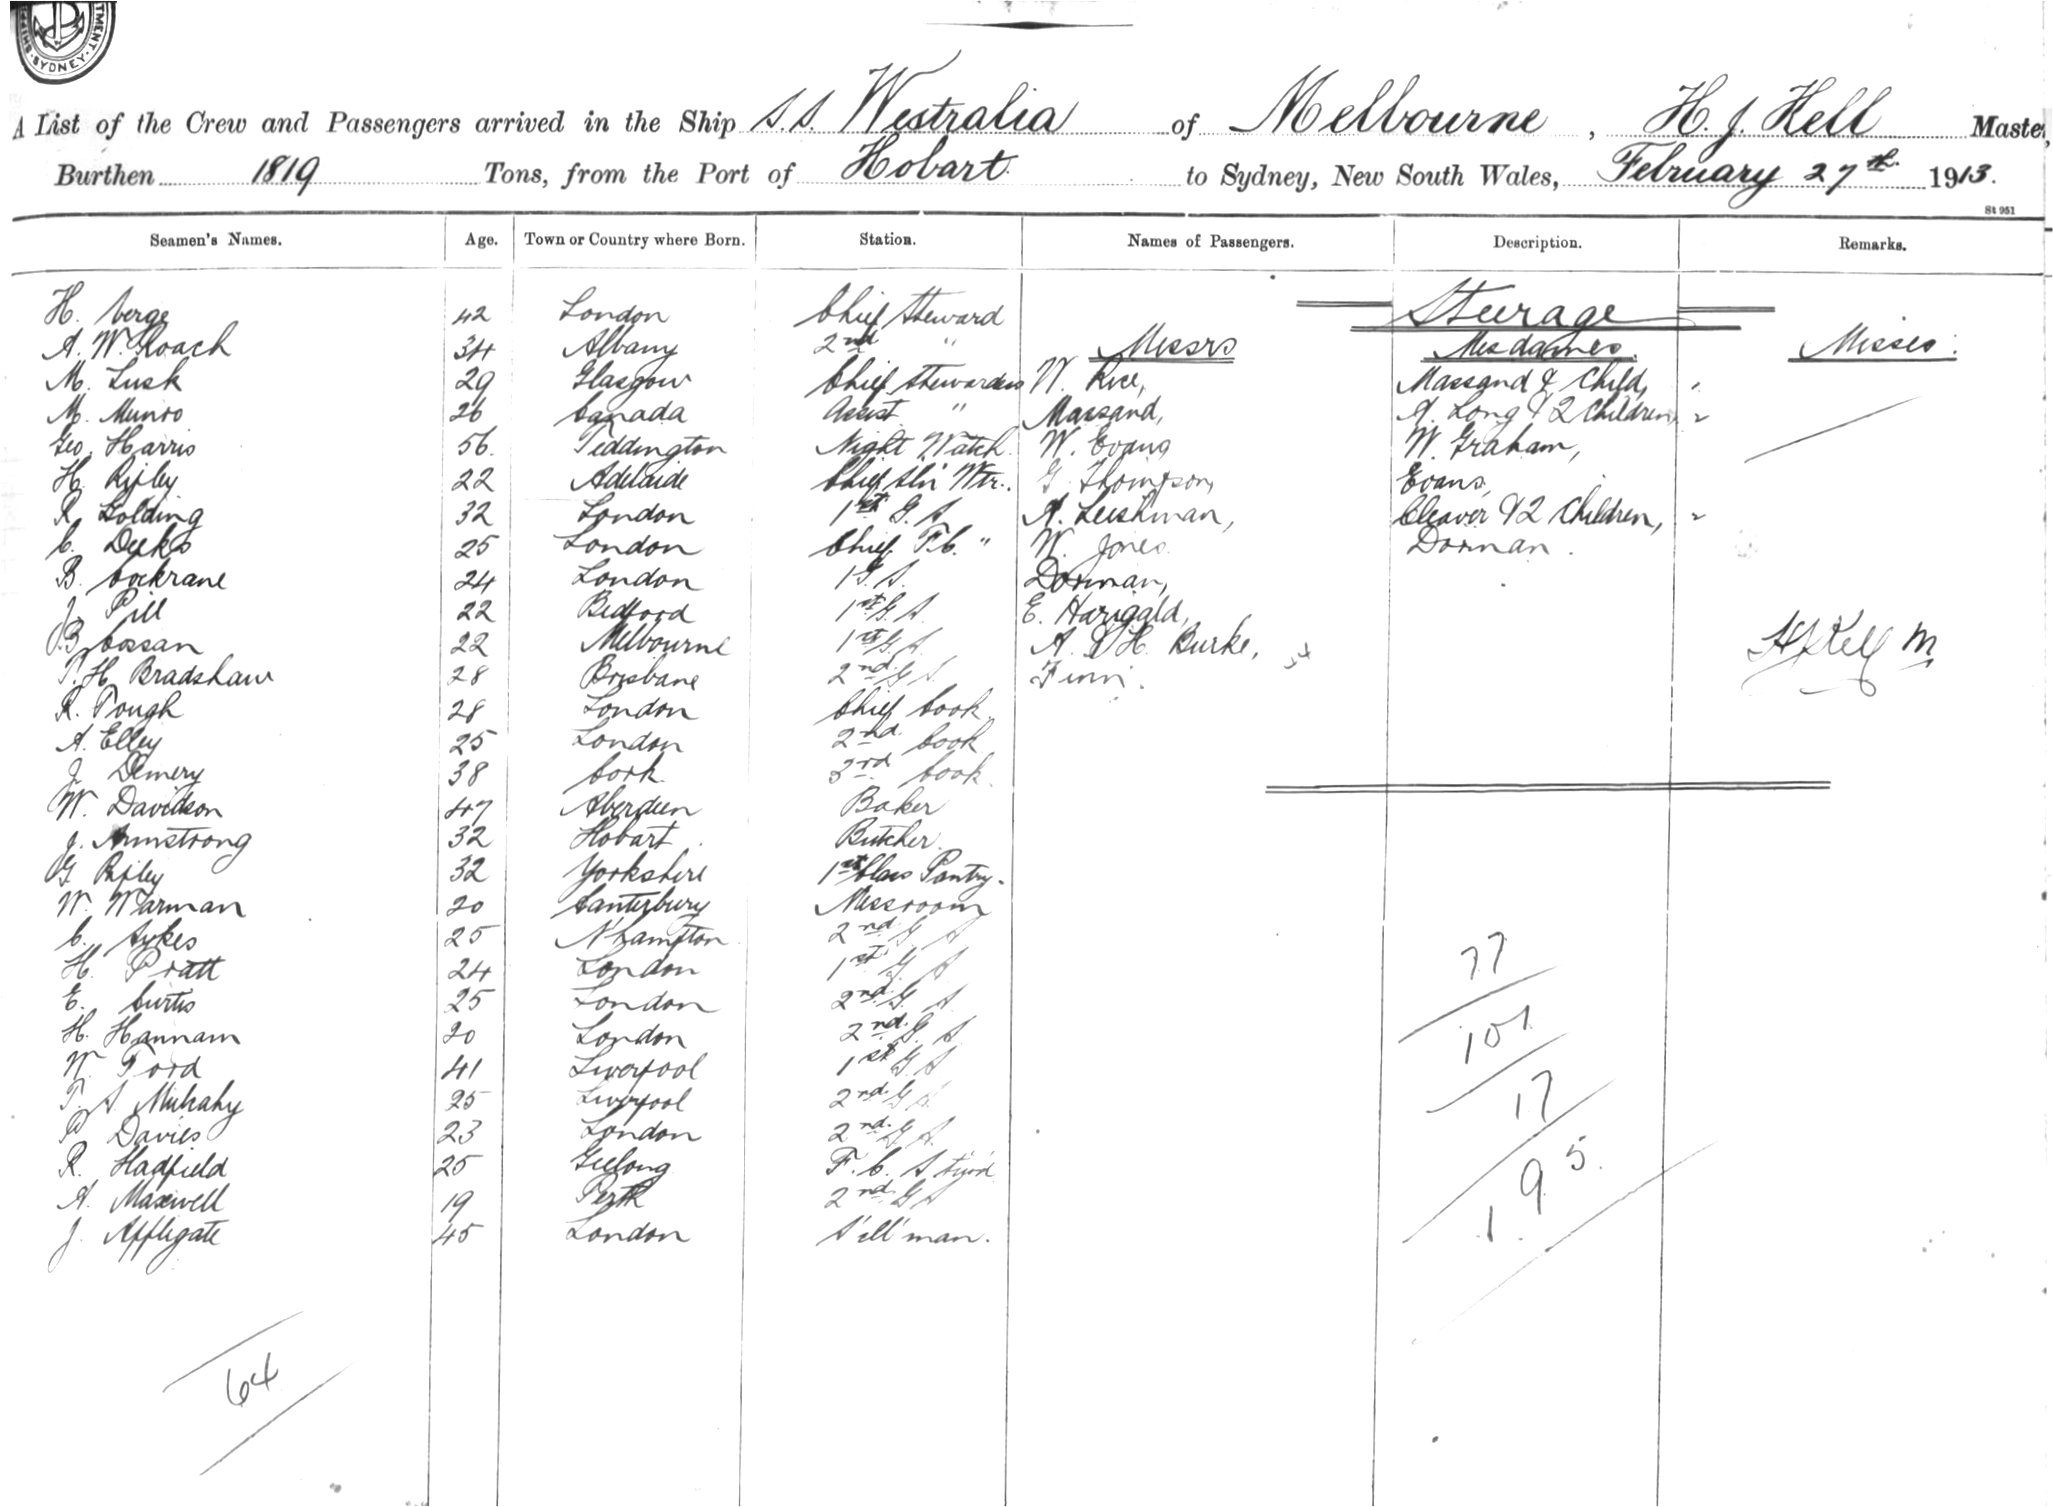 SYDNEY
A List of the Crew and Passengers arrived in the Ship S.S. Westralia of Melbourne, H. J. Kell Master,
Burthen 1819 Tons, from the Port of Hobart to Sydney, New South Wales, February 27th 1913.
St 951
Seamen's Names. Age. Town or Country where Born. Station. Names of Passengers. Description. Remarks.
Steerage
H. Verge 42 London Chief Steward
A. W. Roach 34 Albany 2nd " Messrs Mesdames. Misses.
M. Lusk 29 Glasgow Chief Stewardess W. Rice, Massand & Child,
M. Munro 26 Canada Assist " Massand, A. Long & 2 Children,
Geo. Harris 56. Teddington Night Watch. W. Evans W. Graham,
H. Ripley 22 Adelaide Chief Sln Wtr. G. Thompson, Evans,
R. Golding 32 London 1st G. S. A. Leishman, Cleaver & 2 Children,
C. Deeks 25 London Chief F.C. " W. Jones Dorman.
B. Cockrane 24 London 1 G. S. Dorman,
J. Pill 22 Bedford 1st G. S. E. Harigald,
B. Cossan 22 Melbourne 1st G. S. A. & H. Burke,
T. H. Bradshaw 28 Brisbane 2nd G S Finn.
H J Kell M
R. Tough 28 London Chief Cook
A. Elley 25 London 2nd Cook
J. Demery 38 Cork 3rd Cook
W. Davidson 47 Aberdeen Baker
J. Armstrong 32 Hobart. Butcher
G Ripley 32 Yorkshire 1st Class Pantry.
W. Warman 20 Canterbury Messroom
C. Sykes 25 N'hampton 2nd G S
H. Pratt 24 London 1st G S
E. Curtis 25 London 2nd G. S
H. Hannam 20 London 2nd G. S.
W. Ford 41 Liverpool 1st G S
T. S. Mulcahy 25 Liverpool 2nd G S
P Davies 23 London 2nd G S.
R. Hadfield 25 Geelong F. C. S
A. Maxwell 19 Perth 2nd G S
J. Applegate 45 London S'ell'man.
77
101
17
195.
64